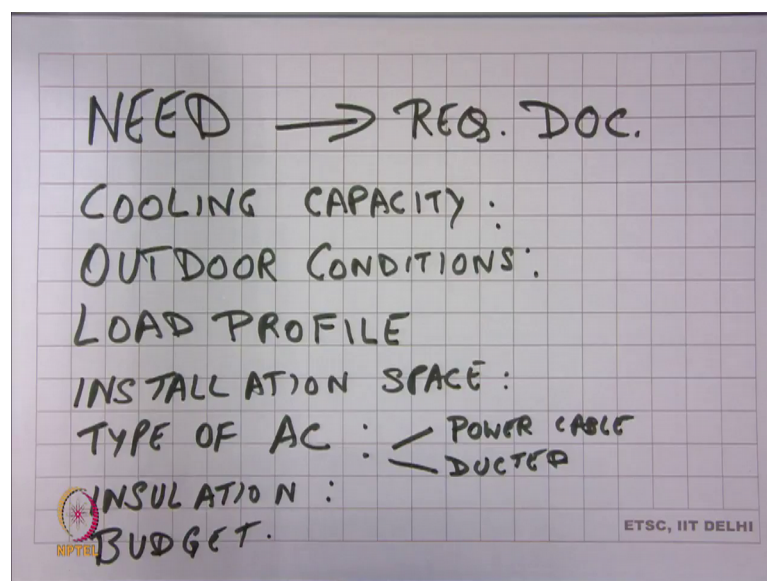 NEED → REQ. DOC.
COOLING CAPACITY :
OUTDOOR CONDITIONS :
LOAD PROFILE
INSTALLATION SPACE :
TYPE OF AC : POWER CABLE
DUCTED
INSULATION :
BUDGET.
NPTEL
ETSC, IIT DELHI